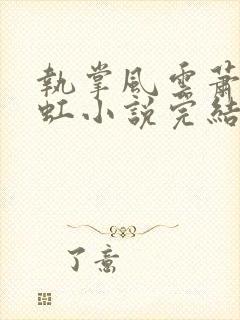 執掌風雲蕭
虹小說完結
了意